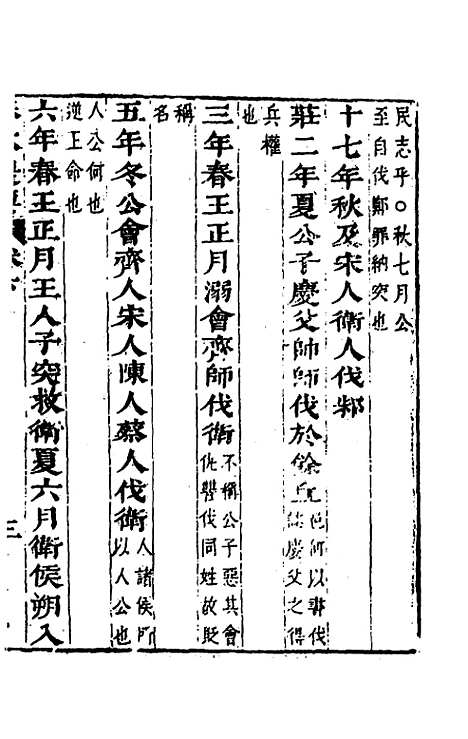 民志乎○秋七月公
至自伐鄭罪納突也
十七年秋及宋人衛人伐邾
莊二年夏公子慶父帥師伐於餘丘 邑何以書伐
慶父之得
兵權
也
三年春王正月溺會齊師伐衛 不稱公子惡其會
仇讐伐同姓故貶
稱
名
五年冬公會齊人宋人陳人蔡人伐衛 人諸侯所
以人公也
人公何也
逆王命也
六年春王正月王人子突救衛夏六月衛侯朔入
三